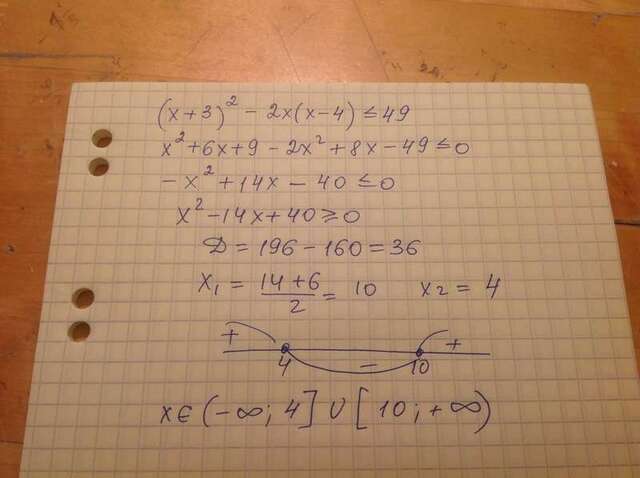 (x+3)² - 2x(x-4) ≤ 49
x² + 6x + 9 - 2x² + 8x - 49 ≤ 0
-x² + 14x - 40 ≤ 0
x² - 14x + 40 ≥ 0
D = 196 - 160 = 36
x₁ = (14+6)/2 = 10 x₂ = 4
+ - +
4 10
x ∈ (-∞; 4] ∪ [10; +∞)